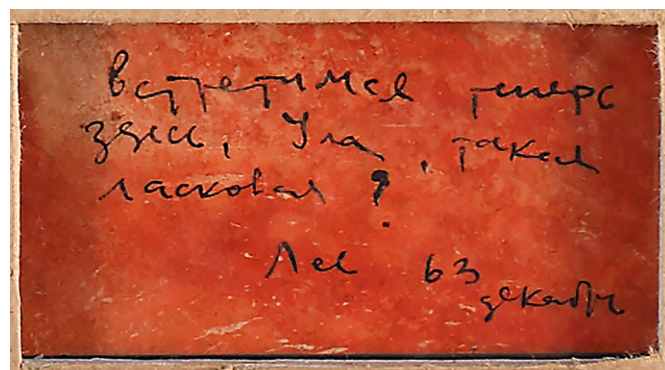 встретимся теперь
здесь, Ула, такая
ласковая?
Лее 63
декабрь